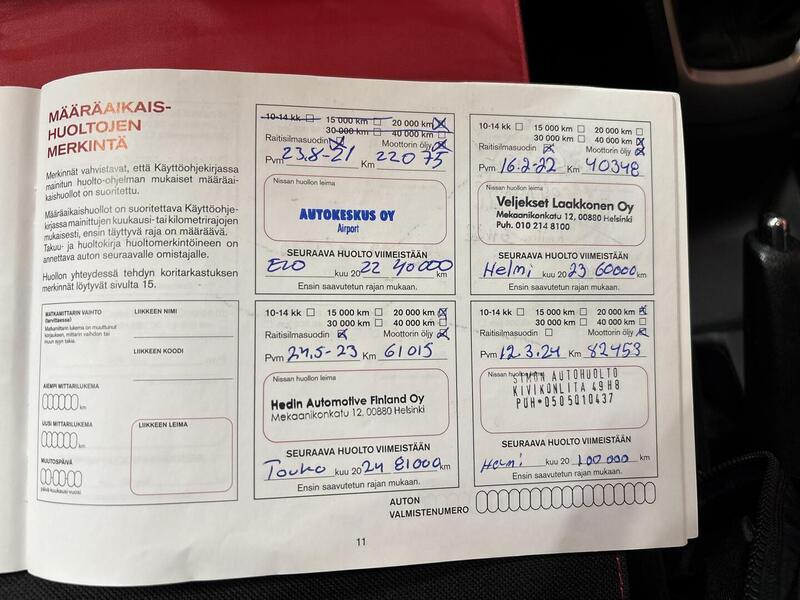 MÄÄRÄAIKAIS-
HUOLTOJEN
MERKINTÄ
Merkinnät vahvistavat, että Käyttöohjekirjassa
mainitun huolto-ohjelman mukaiset määräai-
kaishuollot on suoritettu.
Määräaikaishuollot on suoritettava Käyttöohje-
kirjassa mainittujen kuukausi- tai kilometrirajojen
mukaisesti, ensin täyttyvä raja on määräävä.
Takuu- ja huoltokirja huoltomerkintöineen on
annettava auton seuraavalle omistajalle.
Huollon yhteydessä tehdyn koritarkastuksen
merkinnät löytyvät sivulta 15.
MATKAMITTARIN VAIHTO
(tarvittaessa)
Matkamittarin lukema on muuttunut
korjauksen, mittarin vaihdon tai
muun syyn takia.
LIIKKEEN NIMI
LIIKKEEN KOODI
AIEMPI MITTARILUKEMA
km
UUSI MITTARILUKEMA
km
MUUTOSPÄIVÄ
päivä kuukausi vuosi
LIIKKEEN LEIMA
10-14 kk 15 000 km 20 000 km
30 000 km 40 000 km
Raitisilmasuodin Moottorin öljy
Pvm 23.8-21 Km 22075
Nissan huollon leima
AUTOKESKUS OY
Airport
SEURAAVA HUOLTO VIIMEISTÄÄN
Elo kuu 2022 40000 km
Ensin saavutetun rajan mukaan.
10-14 kk 15 000 km 20 000 km
30 000 km 40 000 km
Raitisilmasuodin Moottorin öljy
Pvm 16.2-22 Km 40348
Nissan huollon leima
Veljekset Laakkonen Oy
Mekaanikonkatu 12, 00880 Helsinki
Puh. 010 214 8100
SEURAAVA HUOLTO VIIMEISTÄÄN
Helmi kuu 2023 60000 km
Ensin saavutetun rajan mukaan.
10-14 kk 15 000 km 20 000 km
30 000 km 40 000 km
Raitisilmasuodin Moottorin öljy
Pvm 24.5-23 Km 61015
Nissan huollon leima
Hedin Automotive Finland Oy
Mekaanikonkatu 12, 00880 Helsinki
SEURAAVA HUOLTO VIIMEISTÄÄN
Touko kuu 2024 81000 km
Ensin saavutetun rajan mukaan.
10-14 kk 15 000 km 20 000 km
30 000 km 40 000 km
Raitisilmasuodin Moottorin öljy
Pvm 12.3.24 Km 82453
Nissan huollon leima
SIMON AUTOHUOLTO
KIVIKONLITA 49H8
PUH*0505010437
SEURAAVA HUOLTO VIIMEISTÄÄN
Helmi kuu 20 100 000 km
Ensin saavutetun rajan mukaan.
AUTON
VALMISTENUMERO
11